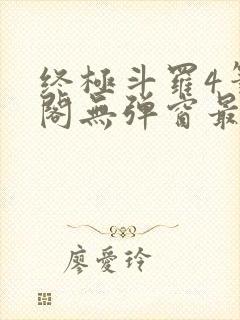 终極斗羅4
閣無弹窗最
廖愛玲